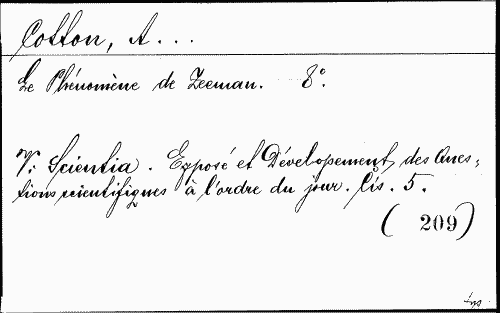 Cotton, A...
Le Phénomène de Zeeman. 8°.
V: Scientia. Exposé et Dévelopement des Ques=
tions scientifiques à l'ordre du jour. Čís. 5.
(209)